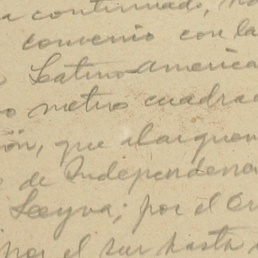 a continuado, no
convenio con la
Latino-America
metros cuadra
ón, que alarguen
de Independen
Leyva; por el Or
por el sur hasta